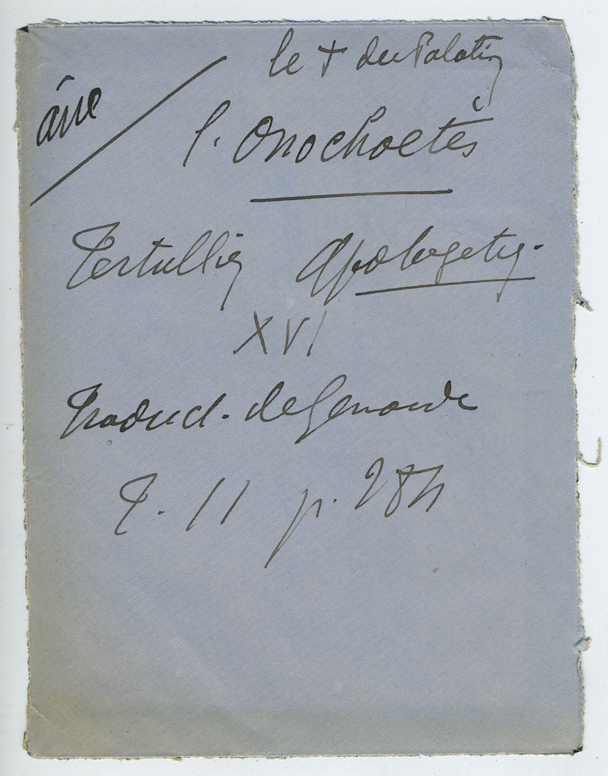 âne
le + du Palatin
l. Onochoetès
Tertullien Apologetiq.
XVI
Traduct. de Genoude
T. 11 p. 284